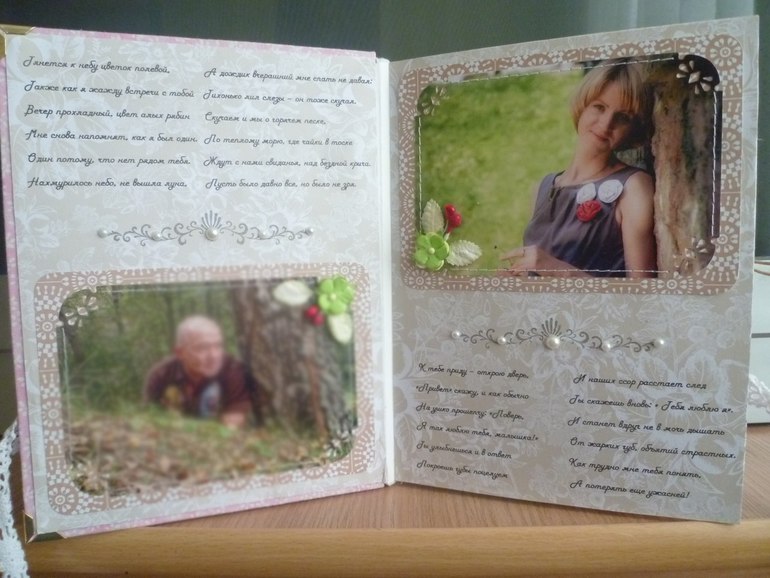 Тянется к небу цветок полевой,
Также как я жажду встречи с тобой
Вечер прохладный, цвет алых рябин
Мне снова напомнят, как я был один,
Один потому, что нет рядом тебя.
Нахмурилось небо, не вышла луна,
А дождик вчерашний мне спать не давал:
Тихонько лил слезы – он тоже скучал.
Скучаем и мы о горячем песке,
По теплому морю, где чайки в тоске
Ждут с нами свиданья, над бездной крича.
Пусть было давно все, но было не зря.
К тебе приду – открою дверь,
«Привет» скажу, и как обычно
На ушко прошепчу: «Поверь,
Я так люблю тебя, малышка!»
Ты улыбнешься и в ответ
Покроешь губы поцелуем
И наших ссор растает след
Ты скажешь вновь: « Тебя люблю я».
И станет вдруг не в мочь дышать
От жарких губ, объятий страстных.
Как трудно мне тебя понять,
А потерять еще ужасней!